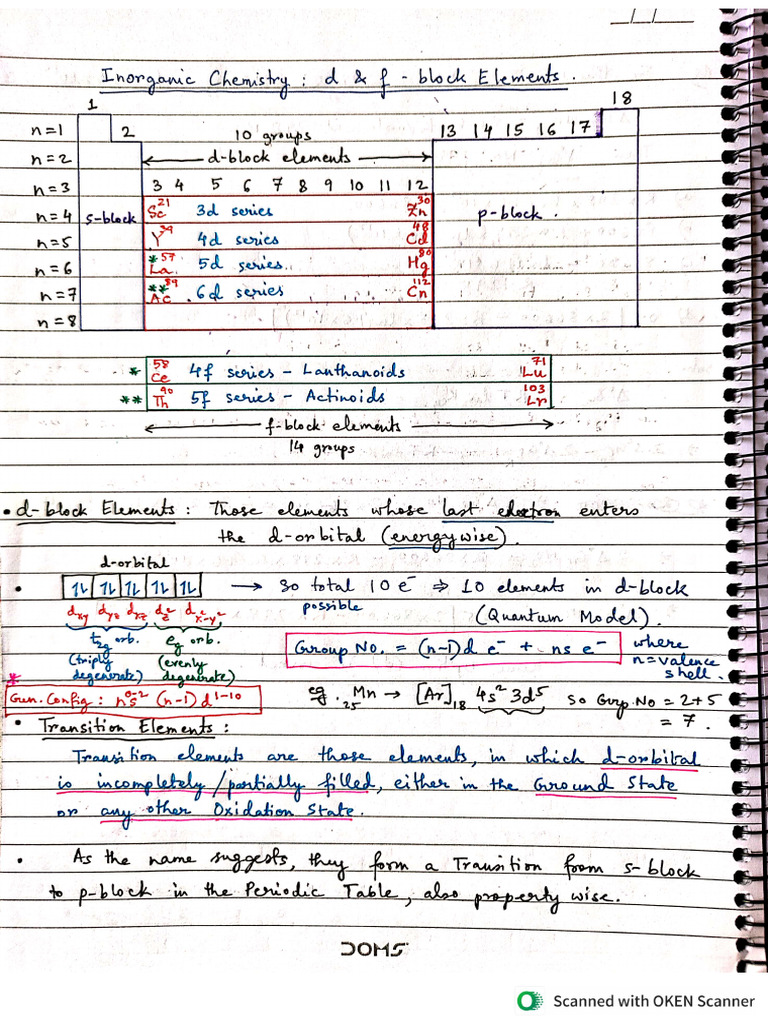 _/_/___
Inorganic Chemistry : d & f - block Elements.
1 18
n=1 2 10 groups 13 14 15 16 17
n=2 d-block elements
n=3 3 4 5 6 7 8 9 10 11 12
n=4 s-block 21 Sc 3d series 30 Zn p-block.
n=5 39 Y 4d series 48 Cd
n=6 * 57 La 5d series 80 Hg
n=7 ** 89 Ac 6d series 112 Cn
n=8
* 58 Ce 4f series - Lanthanoids 71 Lu
** 90 Th 5f series - Actinoids 103 Lr
f-block elements
14 groups
• d-block Elements : Those elements whose last electron enters
the d-orbital (energywise).
d-orbital
• ⥮ ⥮ ⥮ ⥮ ⥮ → So total 10 e⁻ ⇒ 10 elements in d-block
possible
dxy dyz dxz dz² dx²-y² (Quantum Model).
t2g orb. eg orb.
(triply degenerate) (evenly degenerate)
Group No. = (n-1)d e⁻ + ns e⁻ where n=valence shell.
* Gen. Config : ns⁰⁻² (n-1)d¹⁻¹⁰
eg. ₂₅Mn → [Ar]₁₈ 4s² 3d⁵ so Grp. No = 2+5
= 7.
• Transition Elements :
Transition elements are those elements, in which d-orbital
is incompletely/partially filled, either in the Ground State
or any other Oxidation State.
• As the name suggests, they form a Transition from s-block
to p-block in the Periodic Table, also property wise.
DOMS
Scanned with OKEN Scanner